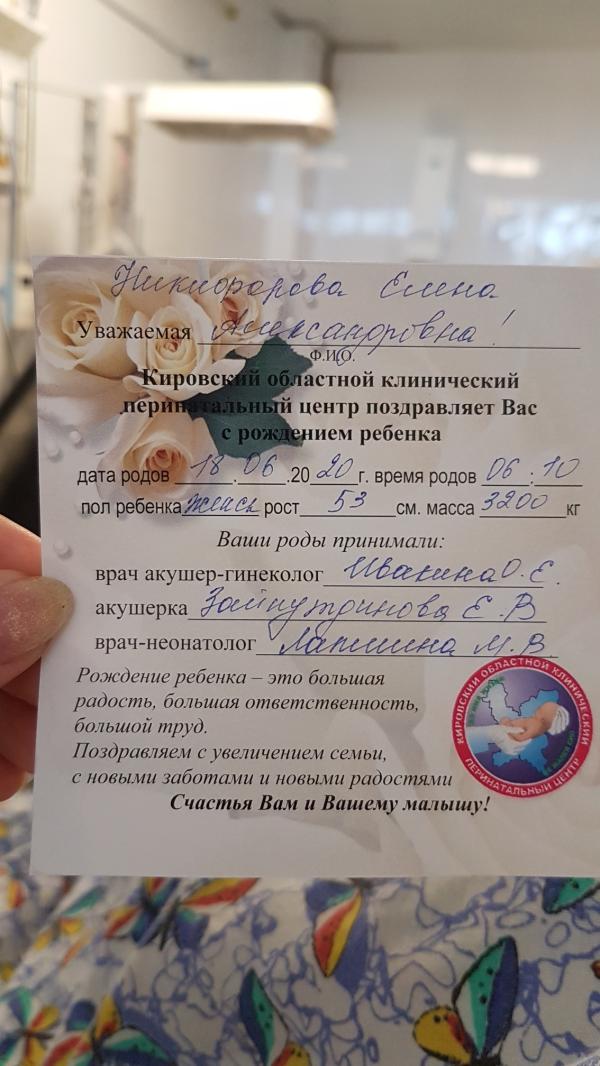 Никифорова Елена
Уважаемая Александровна!
Ф.И.О.
Кировский областной клинический
перинатальный центр поздравляет Вас
с рождением ребенка
дата родов 18.06.2020 г. время родов 06:10
пол ребенка женск рост 53 см. масса 3200 кг
Ваши роды принимали:
врач акушер-гинеколог Ивакина О.Е.
акушерка Зайнутдинова Е.В
врач-неонатолог Лапшина М.В.
Рождение ребенка – это большая
радость, большая ответственность,
большой труд.
Поздравляем с увеличением семьи,
с новыми заботами и новыми радостями
Счастья Вам и Вашему малышу!
КИРОВСКИЙ ОБЛАСТНОЙ КЛИНИЧЕСКИЙ
ПЕРИНАТАЛЬНЫЙ ЦЕНТР